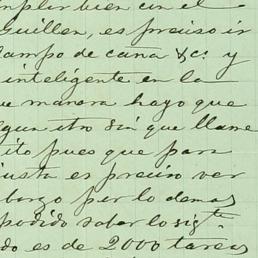 mplir bien con el
Guillen, es preciso ir
campo de caña &c.ª y
inteligente en la
ue manera hayo que
lgun otro sin que llame
ito pues que para
usta es preciso ver
bargo por lo demas
podido saber lo sigte
do es de 2000 tareas